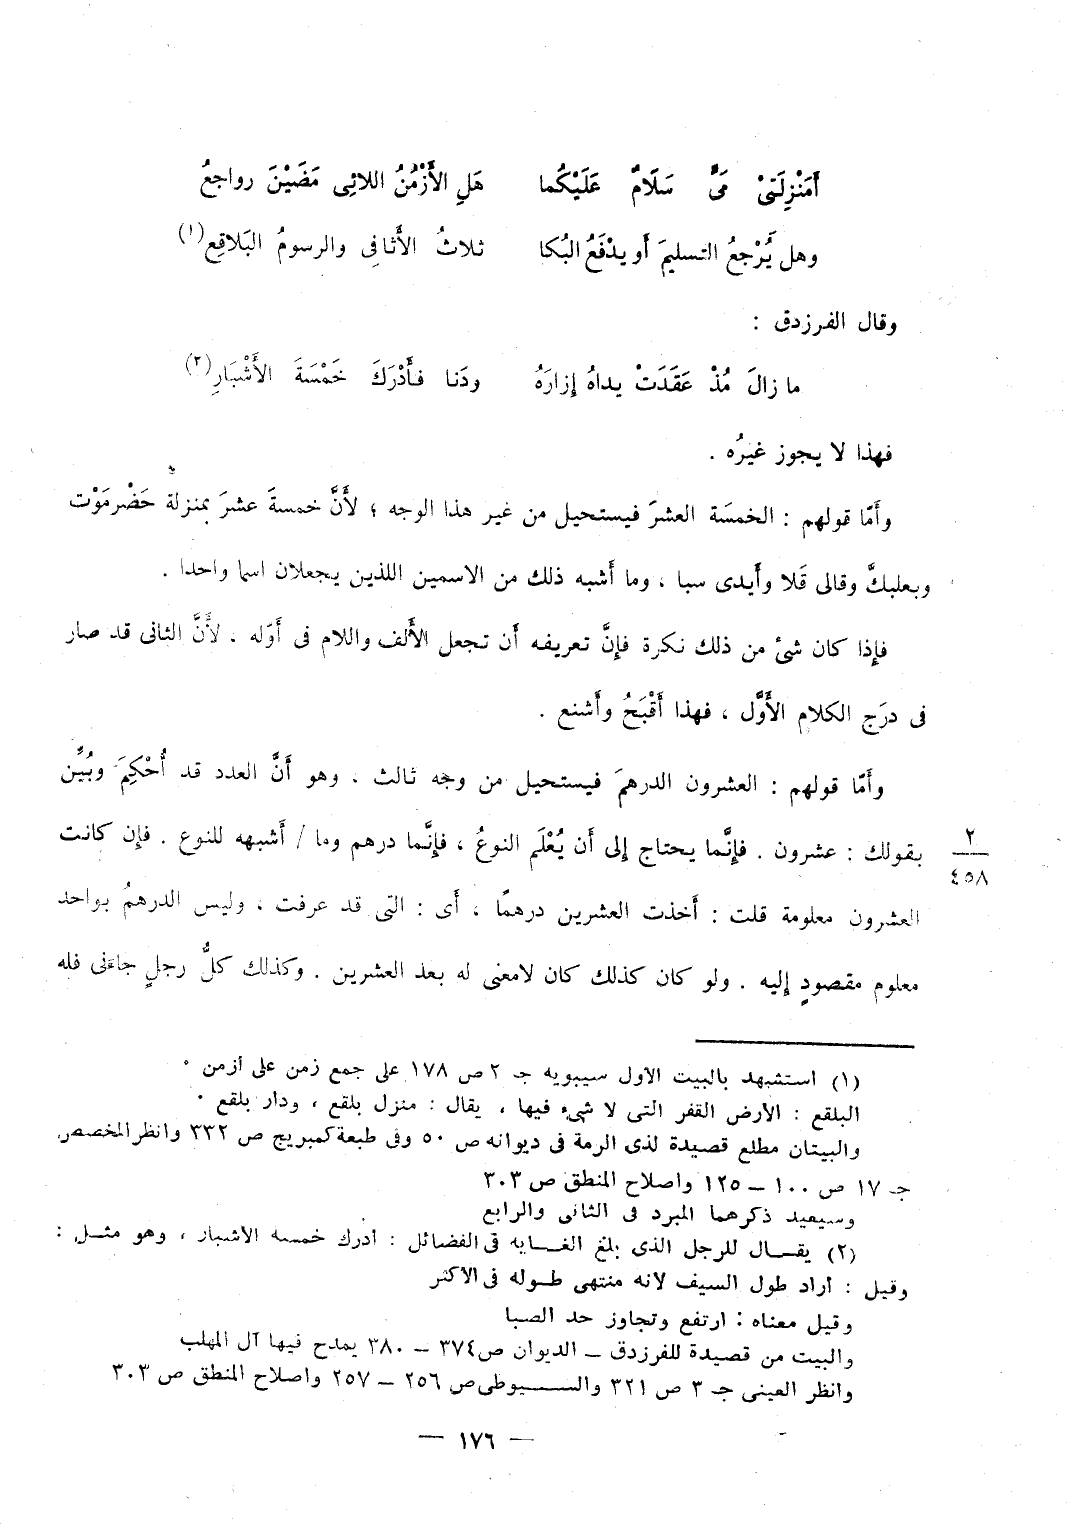 أَمَنْزِلَتَىْ مَىٍّ سَلَامٌ عَلَيْكُما هَلِ الأَزْمُنُ اللائِى مَضَيْنَ رواجعُ
وهل يَرْجعُ التسليمَ أَو يدْفَعُ البُكا ثلاثُ الأَثافِى والرسومُ البَلاقِع(١)
وقال الفرزدق :
ما زالَ مُذْ عَقَدَتْ يداهُ إِزارَهُ ودَنا فأَدْرَكَ خَمْسَةَ الأَشْبَارِ(٢)
فهذا لا يجوز غيرُه .
وأَمّا قولهم : الخمسَة العشرَ فيستحيل من غير هذا الوجه ؛ لأَنَّ خمسةَ عشرَ بمنزلة حَضْرمَوْت
وبعلبكَّ وقالى قَلا وأَيدى سبا ، وما أَشبه ذلك من الاسمين اللذين يجعلان اسما واحدا .
فإِذا كان شىْ من ذلك نكرة فإِنَّ تعريفه أَن تجعل الأَلف واللام فى أَوّله . لأَنَّ الثانى قد صار
فى درَج الكلام الأَوَّل ، فهذا أَقْبَحُ وأَشنع .
وأَمّا قولهم : العشرون الدرهمَ فيستحيل من وجه ثالث . وهو أَنَّ العدد قد أُحْكِمَ وبُيِّن
بقولك : عشرون . فإِنَّما يحتاج إِلى أَن يُعْلَم النوعُ ، فإِنَّما درهم وما / أَشبهه للنوع . فإِن كانت
٢
٤٥٨
العشرون معلومة قلت : أَخذت العشرين درهمًا ، أَى : التى قد عرفت ، وليس الدرهمُ بواحد
معلوم مقصودٍ إِليه . ولو كان كذلك كان لامعنى له بعد العشرين . وكذلك كلُّ رجلٍ جاءَنى فله
(١) استشهد بالبيت الأول سيبويه جـ ٢ ص ١٧٨ على جمع زمن على أزمن ٠
البلقع : الأرض القفر التى لا شىء فيها ، يقال : منزل بلقع ، ودار بلقع ٠
والبيتان مطلع قصيدة لذى الرمة فى ديوانه ص ٥٠ وفى طبعة كمبريج ص ٣٣٢ وانظر المخصص
جـ ١٧ ص ١٠٠ – ١٢٥ واصلاح المنطق ص ٣٠٣
وسيعيد ذكرهما المبرد فى الثانى والرابع
(٢) يقـــال للرجل الذى بلغ الغـــاية فى الفضائل : أدرك خمسة الأشبار ، وهو مثـــل :
وقيل : أراد طول السيف لأنه منتهى طـوله فى الأكثر
وقيل معناه : ارتفع وتجاوز حد الصبا
والبيت من قصيدة للفرزدق – الديوان ص٣٧٤ – ٣٨٠ يمدح فيها آل المهلب
وانظر العينى جـ ٣ ص ٣٢١ والســـيوطى ص ٢٥٦ – ٢٥٧ واصلاح المنطق ص ٣٠٣
— ١٧٦ —